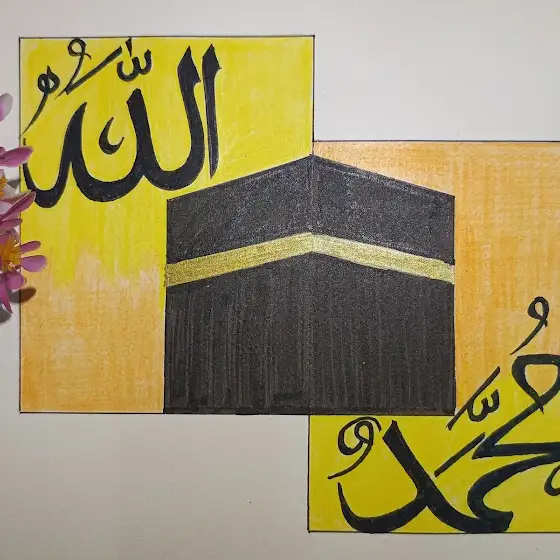 اللهُ
مُحمَّدٌ